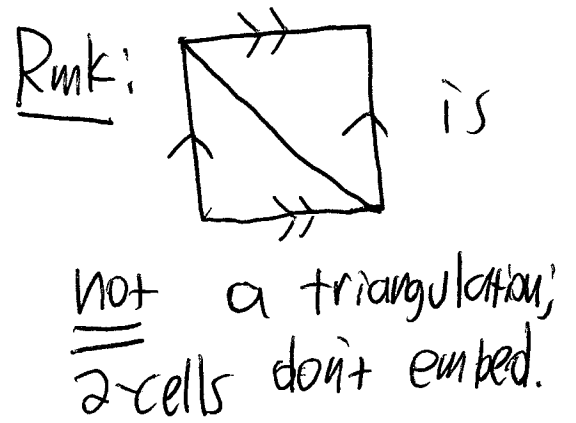 Rmk: is
not a triangulation;
2-cells don't embed.